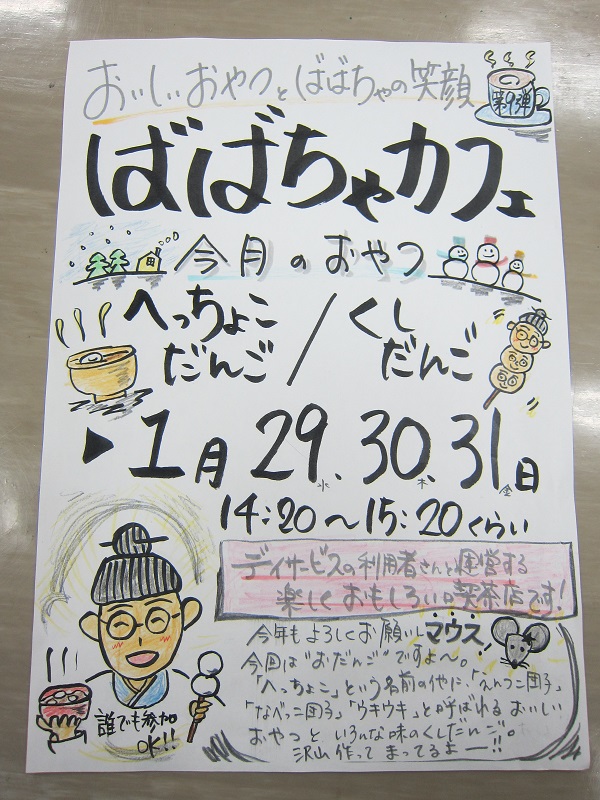 おいしいおやつとばばちゃの笑顔
第9弾
ばばちゃカフェ
今月のおやつ
へっちょこだんご／くしだんご
▶1月29、30、31日
水 木 金
14:20～15:20くらい
デイサービスの利用者さんと運営する
楽しくおもしろい喫茶店です！
今年もよろしくお願いしマウス！
今回は"おだんご"ですよ～。
「へっちょこ」という名前の他に、「えんつこ団子」
「なべっこ団子」「ウキウキ」と呼ばれるおいしい
おやつと いろんな味のくしだんご。
沢山作って まってるよ――!!
誰でも参加
OK!!